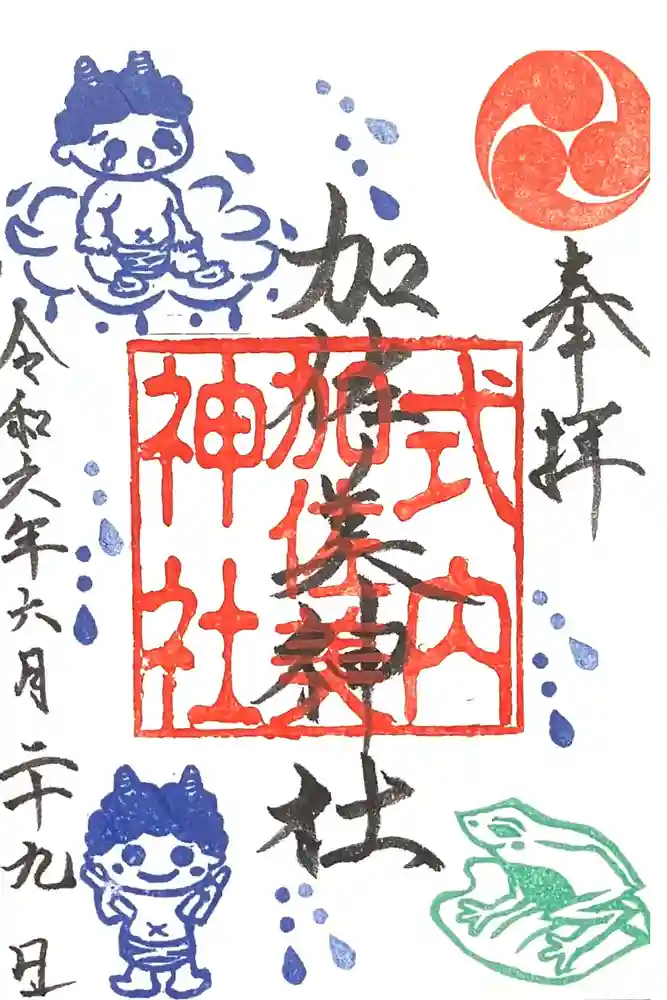 奉拝
加佐美神社
式内
加佐美
神社
令和六年六月二十九日